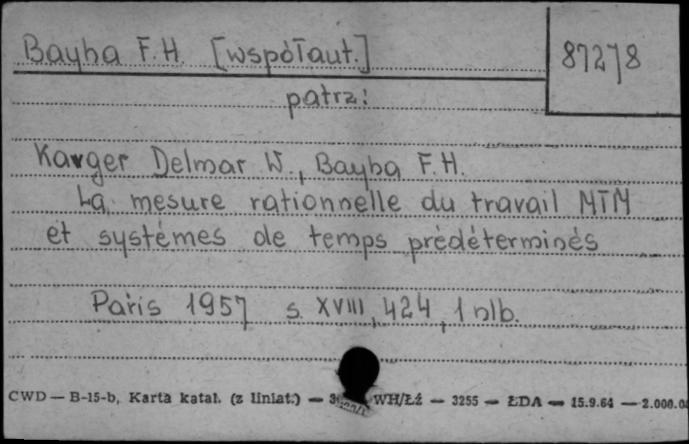 Bayha F.H. [współaut.]
87278
patrz:
Karger Delmar W., Bayha F.H.
La mesure rationnelle du travail MTM
et systémes de temps prédéterminés
Paris 1957 s. XVIII, 424, 1 nlb.
CWD — B-15-b, Karta katal. (z liniat.) — WH/Łź — 3255 — ŁDA — 15.9.64 — 2.000.0